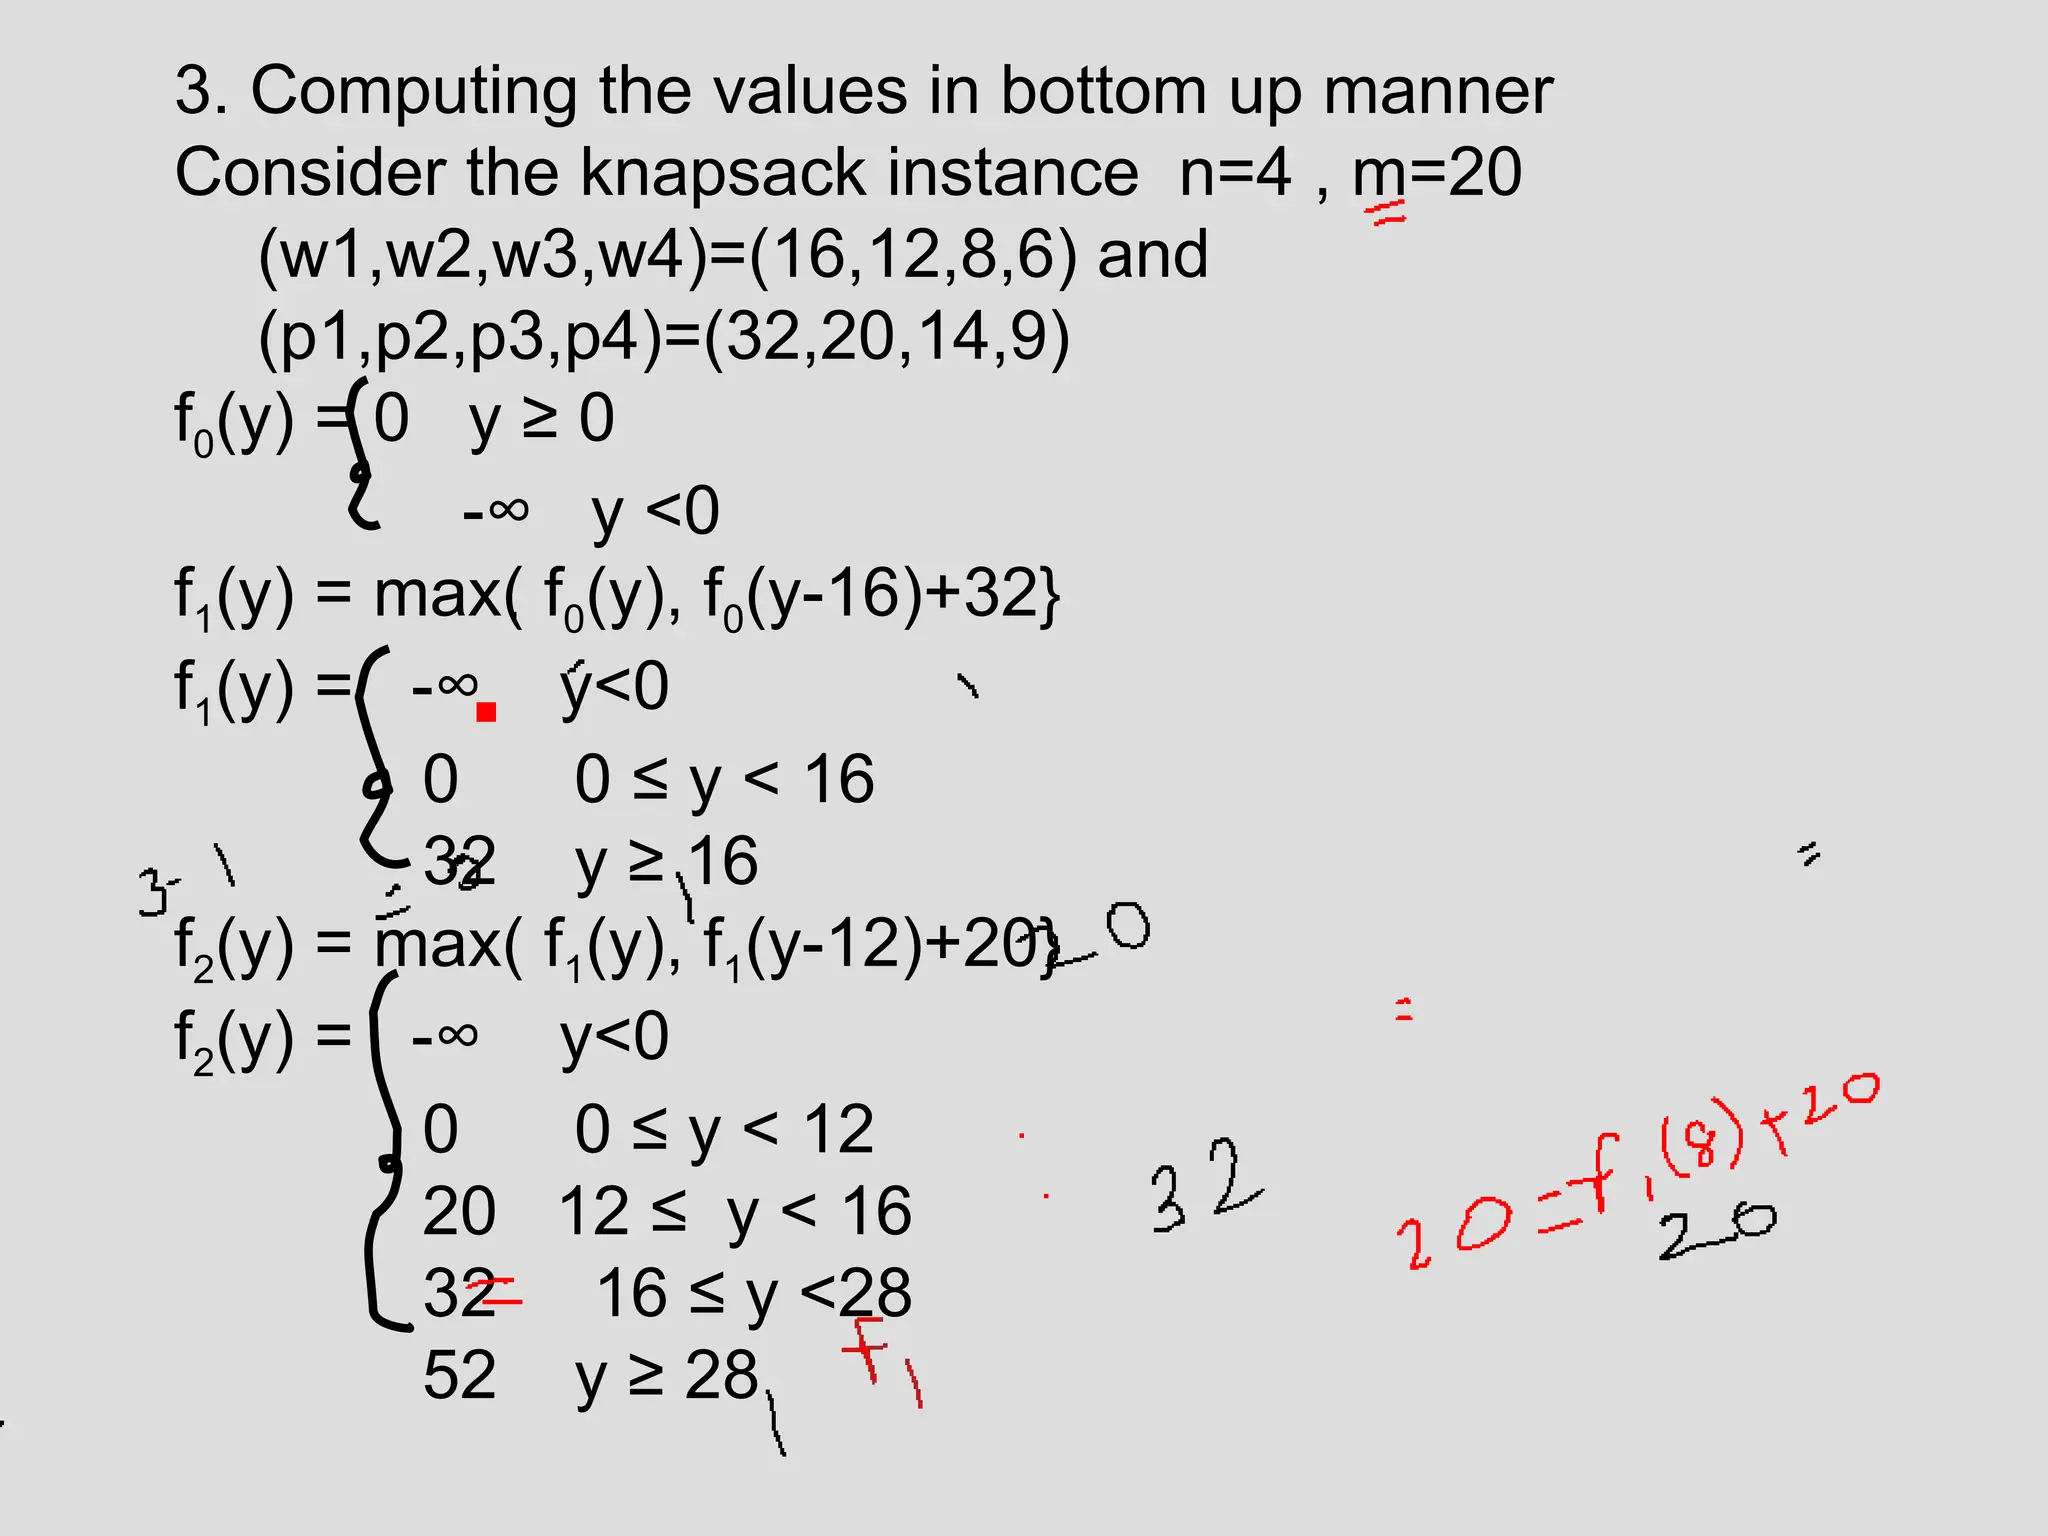 3. Computing the values in bottom up manner
Consider the knapsack instance n=4 , m=20
(w1,w2,w3,w4)=(16,12,8,6) and
(p1,p2,p3,p4)=(32,20,14,9)
f₀(y) = 0 y ≥ 0
-∞ y <0
f₁(y) = max( f₀(y), f₀(y-16)+32}
f₁(y) = -∞ y<0
0 0 ≤ y < 16
32 y ≥ 16
f₂(y) = max( f₁(y), f₁(y-12)+20}
20
f₂(y) = -∞ y<0
0 0 ≤ y < 12
20 12 ≤ y < 16
32
20=f₁(8)+20
20
32 16 ≤ y <28
f₁
52 y ≥ 28